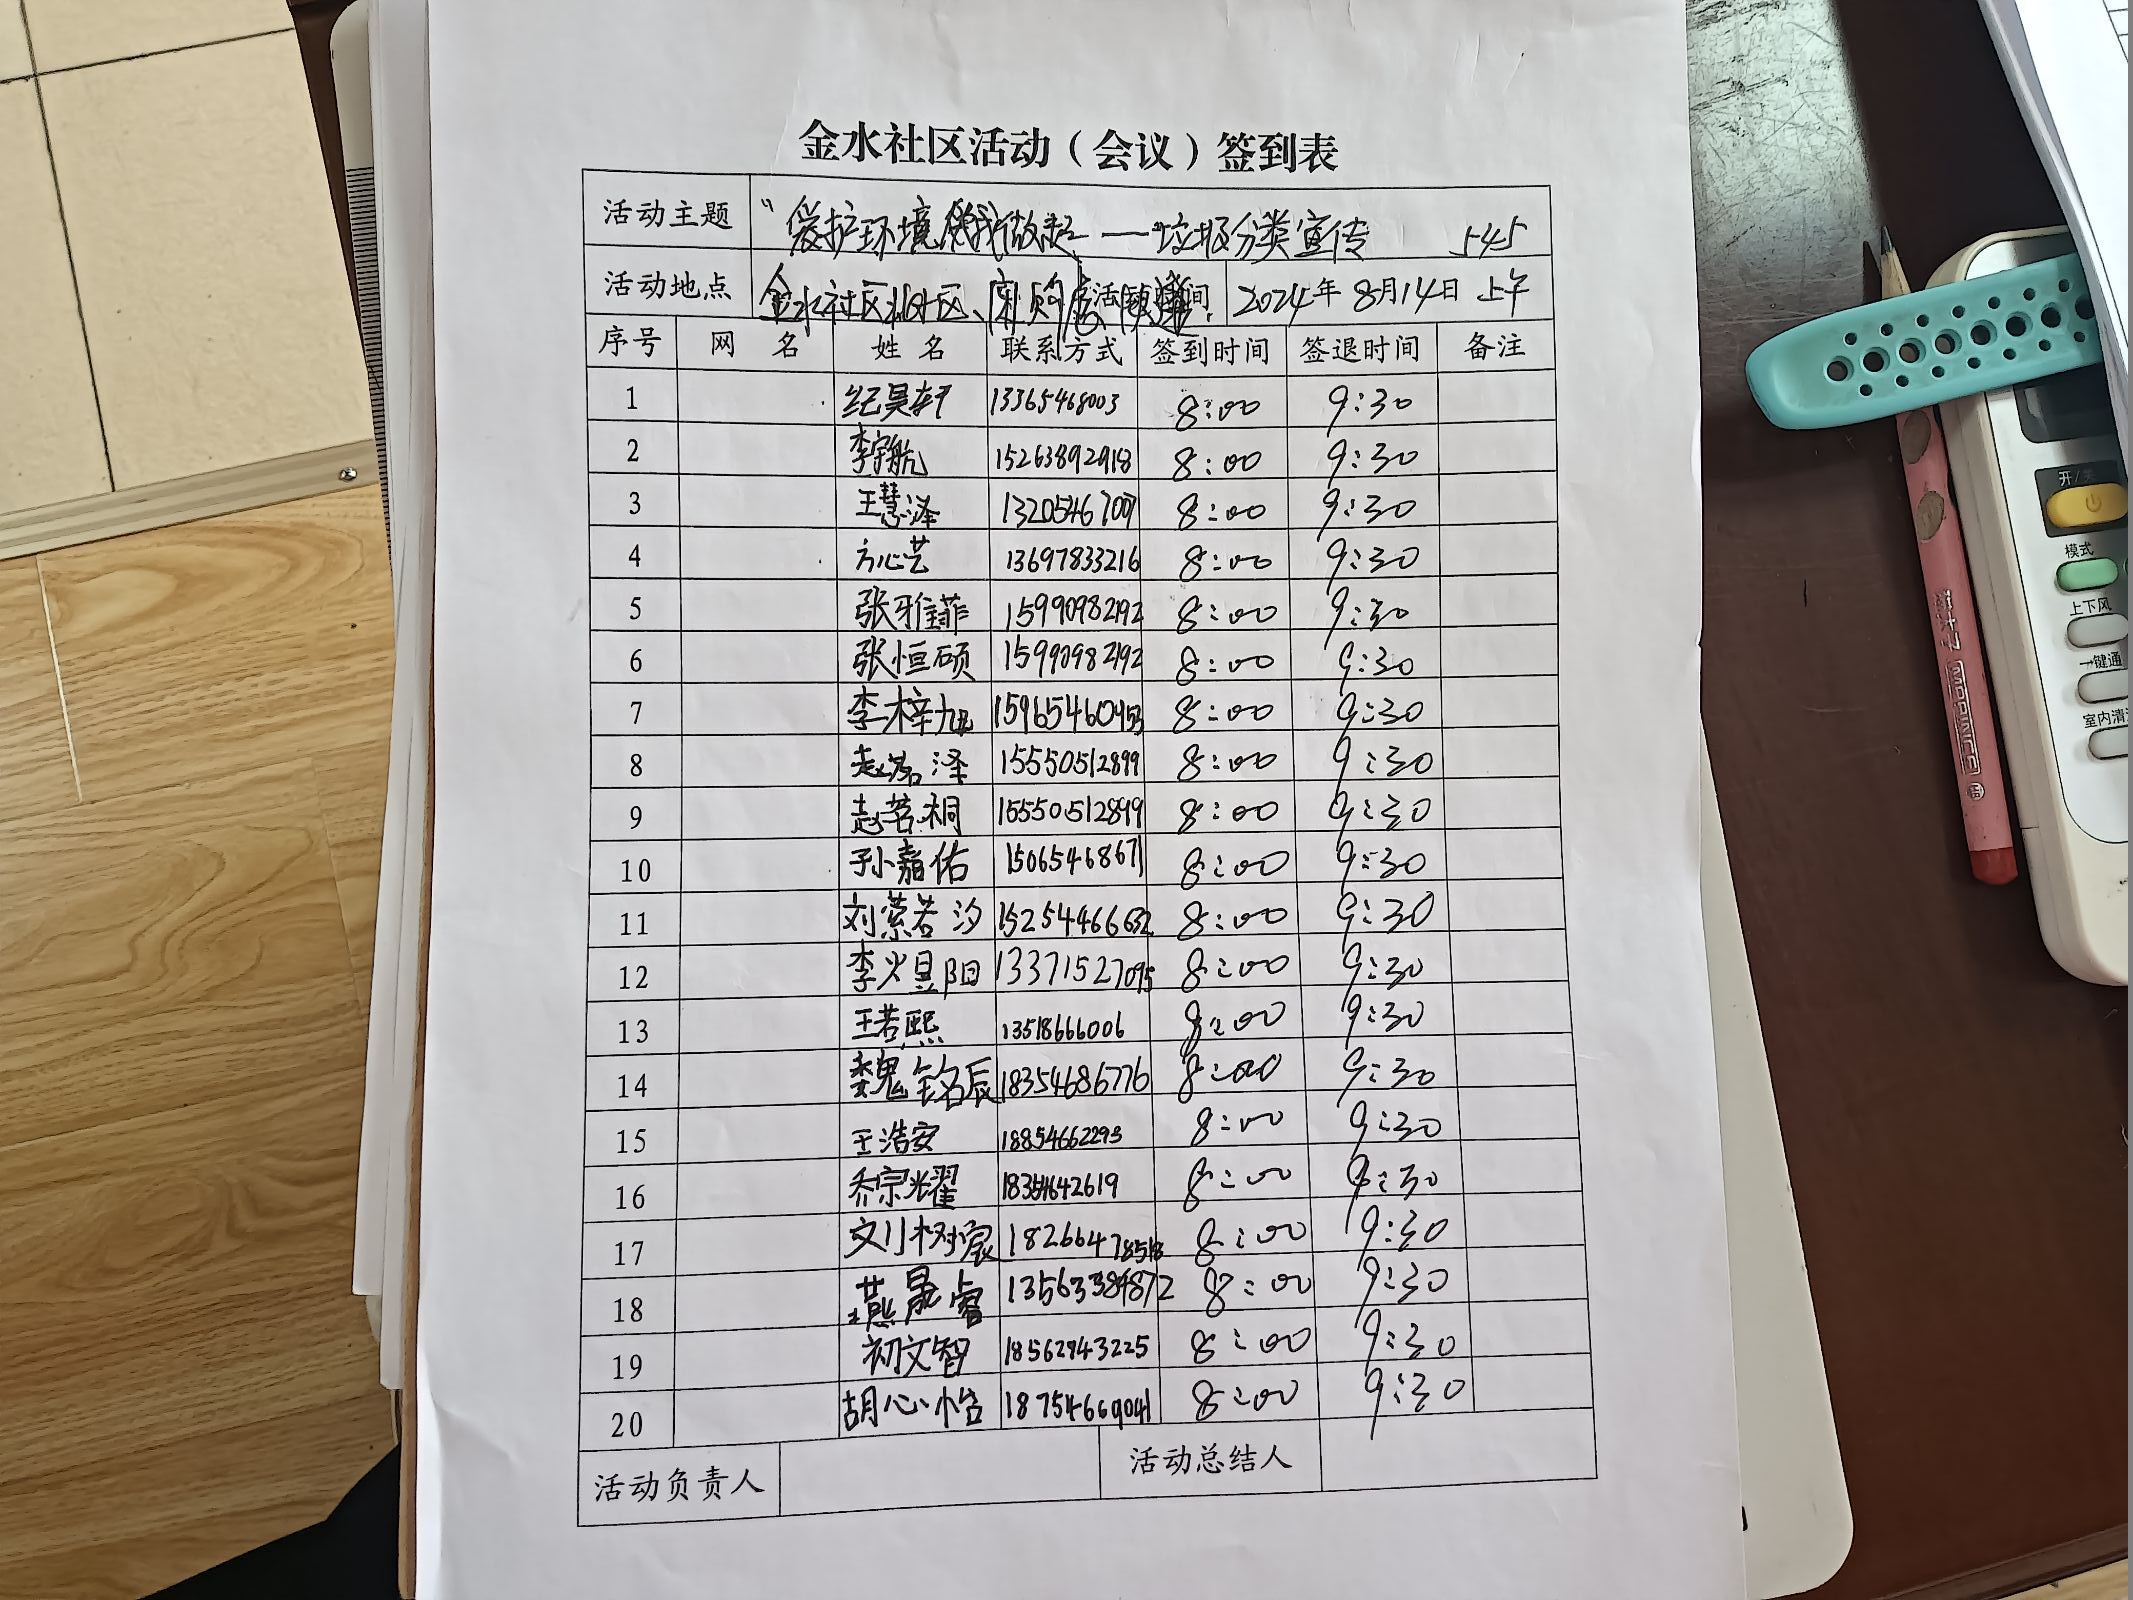 金水社区活动（会议）签到表
活动主题 “爱护环境 从我做起——垃圾分类宣传 545
活动地点 金水社区 活动时间 2024年8月14日 上午
序号 网 名 姓 名 联系方式 签到时间 签退时间 备注
1 纪昊轩 13365468003 8:00 9:30
2 李宇航 15263892918 8:00 9:30
3 王慧泽 8:00 9:30
4 方心艺 13697833216 8:00 9:30
5 张雅菲 15990982192 8:00 9:30
6 张恒硕 15990982192 8:00 9:30
7 李梓旭 15965460953 8:00 9:30
8 赵茗泽 15550512899 8:00 9:30
9 赵茗桐 15550512899 8:00 9:30
10 孙嘉佑 15065468671 8:00 9:30
11 刘萦若汐 15254466632 8:00 9:30
12 李火昱阳 13371527095 8:00 9:30
13 王若熙 13518666006 8:00 9:30
14 魏铭辰 18354686776 8:00 9:30
15 王浩安 18854662293 8:00 9:30
16 乔宗耀 18354642619 8:00 9:30
17 18266478518 8:00 9:30
18 燕晟睿 13563384872 8:00 9:30
19 初文智 18562943225 8:00 9:30
20 胡心怡 18754669041 8:00 9:30
活动负责人 活动总结人
开/关
模式
上下风
一键通
室内清
MARKING
HB